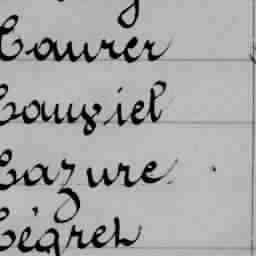 Laurer
Lauziel
Lazure
Légret